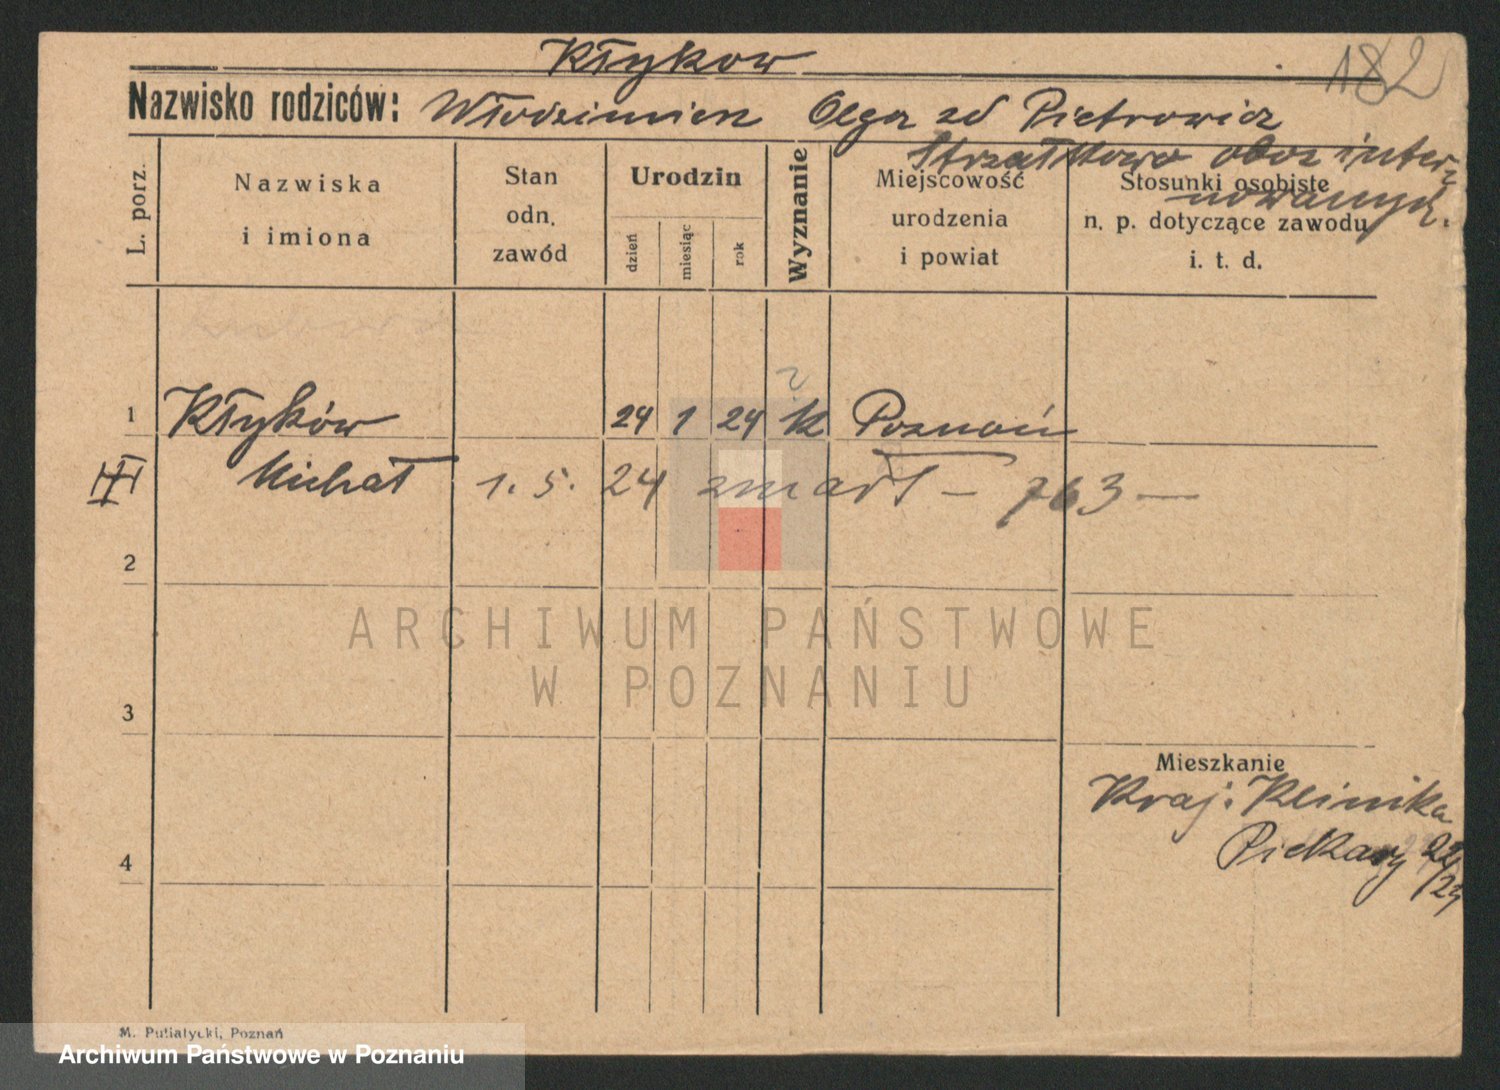 Kłyków
182
Nazwisko rodziców: Włodzimierz Olga zd Pietrowicz
Strzałkowo obóz inter-
nowanych.
L. porz.
Nazwiska
i imiona
Stan
odn.
zawód
Urodzin
dzień
miesiąc
rok
Wyznanie
Miejscowość
urodzenia
i powiat
Stosunki osobiste
n. p. dotyczące zawodu
i. t. d.
1 Kłyków 24 1 24 k Poznań
Michał 1. 5. 24 zmarł - 763 -
2
3
4
Mieszkanie
Kraj. Klinika
Piekary 22/23
ARCHIWUM PAŃSTWOWE
W POZNANIU
M. Putiatycki, Poznań
Archiwum Państwowe w Poznaniu